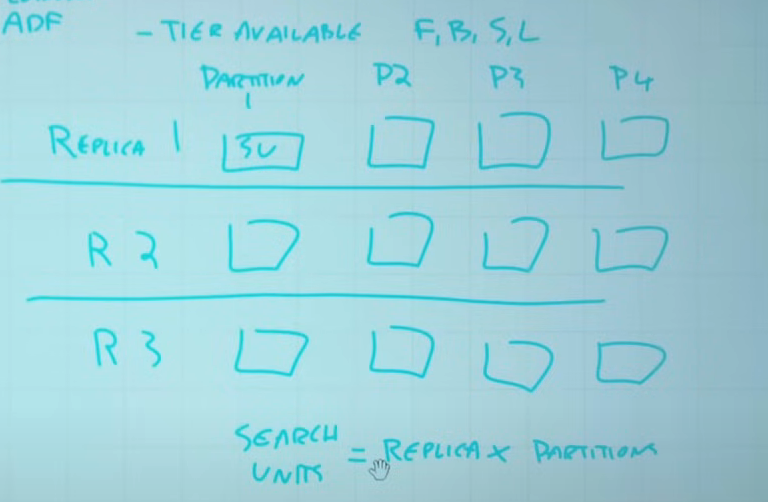 ADF
- TIER AVAILABLE F, B, S, L
PARTITION 1 P2 P3 P4
REPLICA 1 SU
R 2
R 3
SEARCH UNITS = REPLICA X PARTITIONS